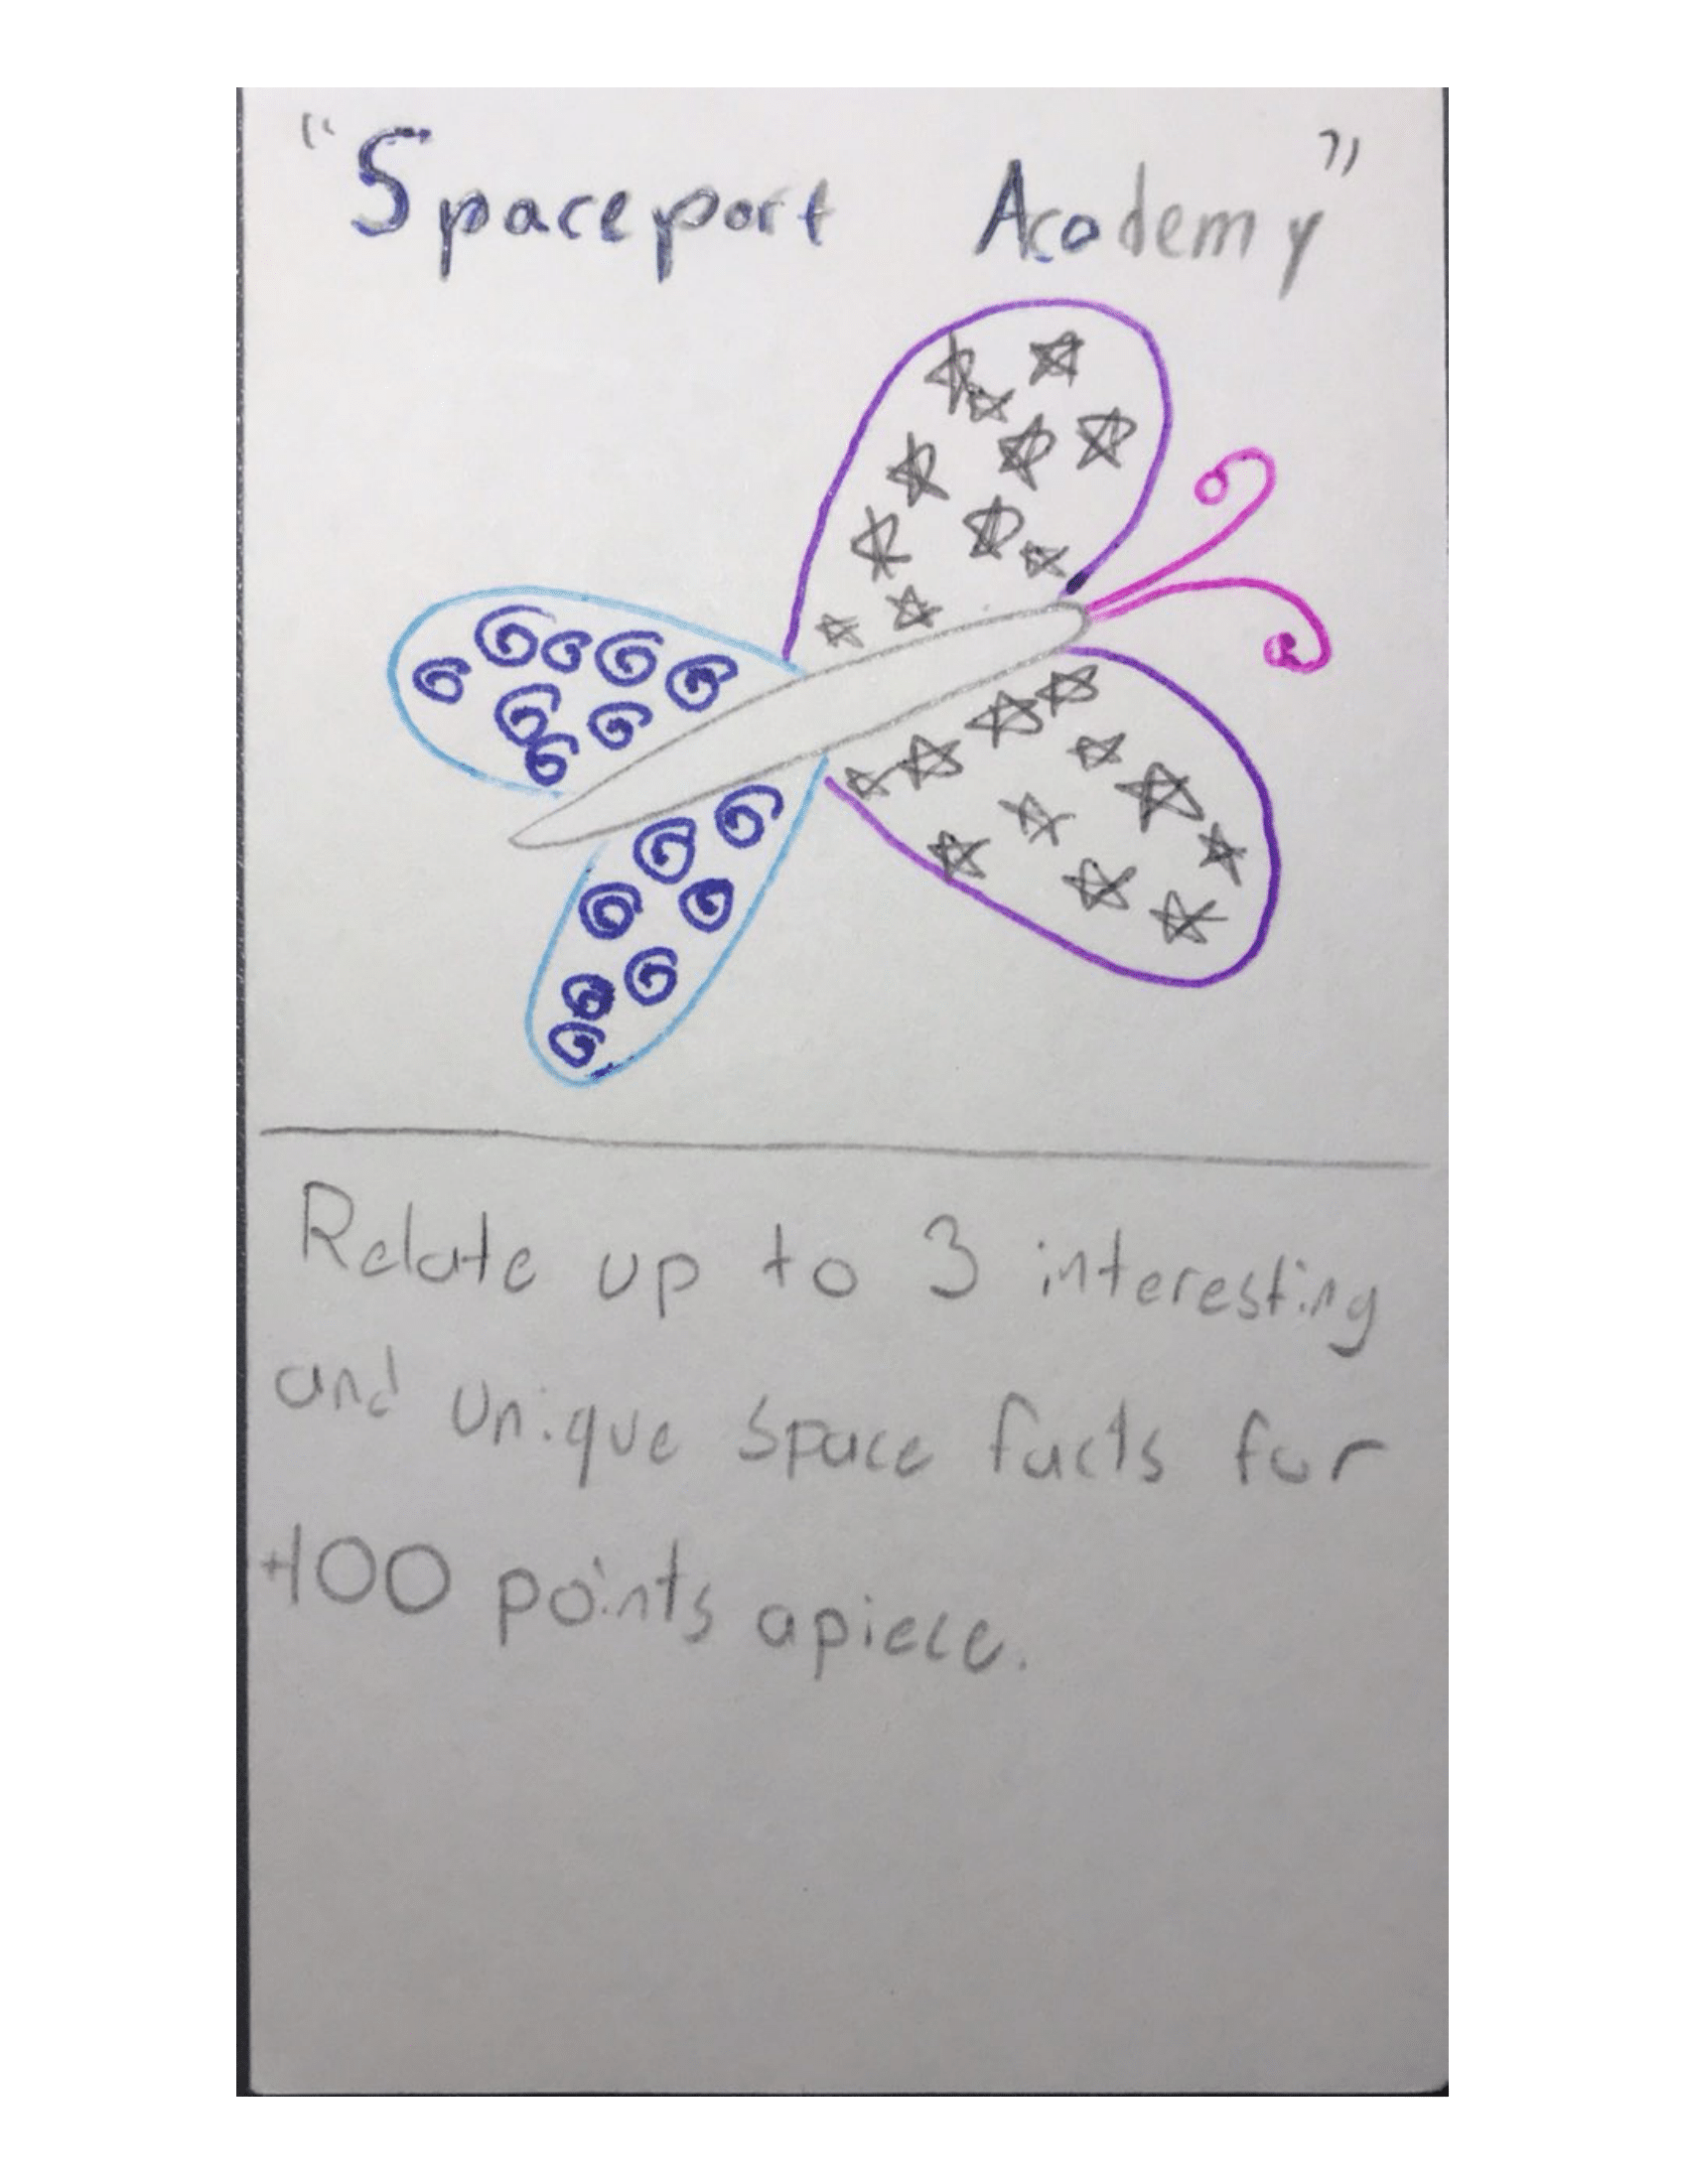 "Spaceport Academy"
Relate up to 3 interesting
and unique space facts for
+100 points apiece.